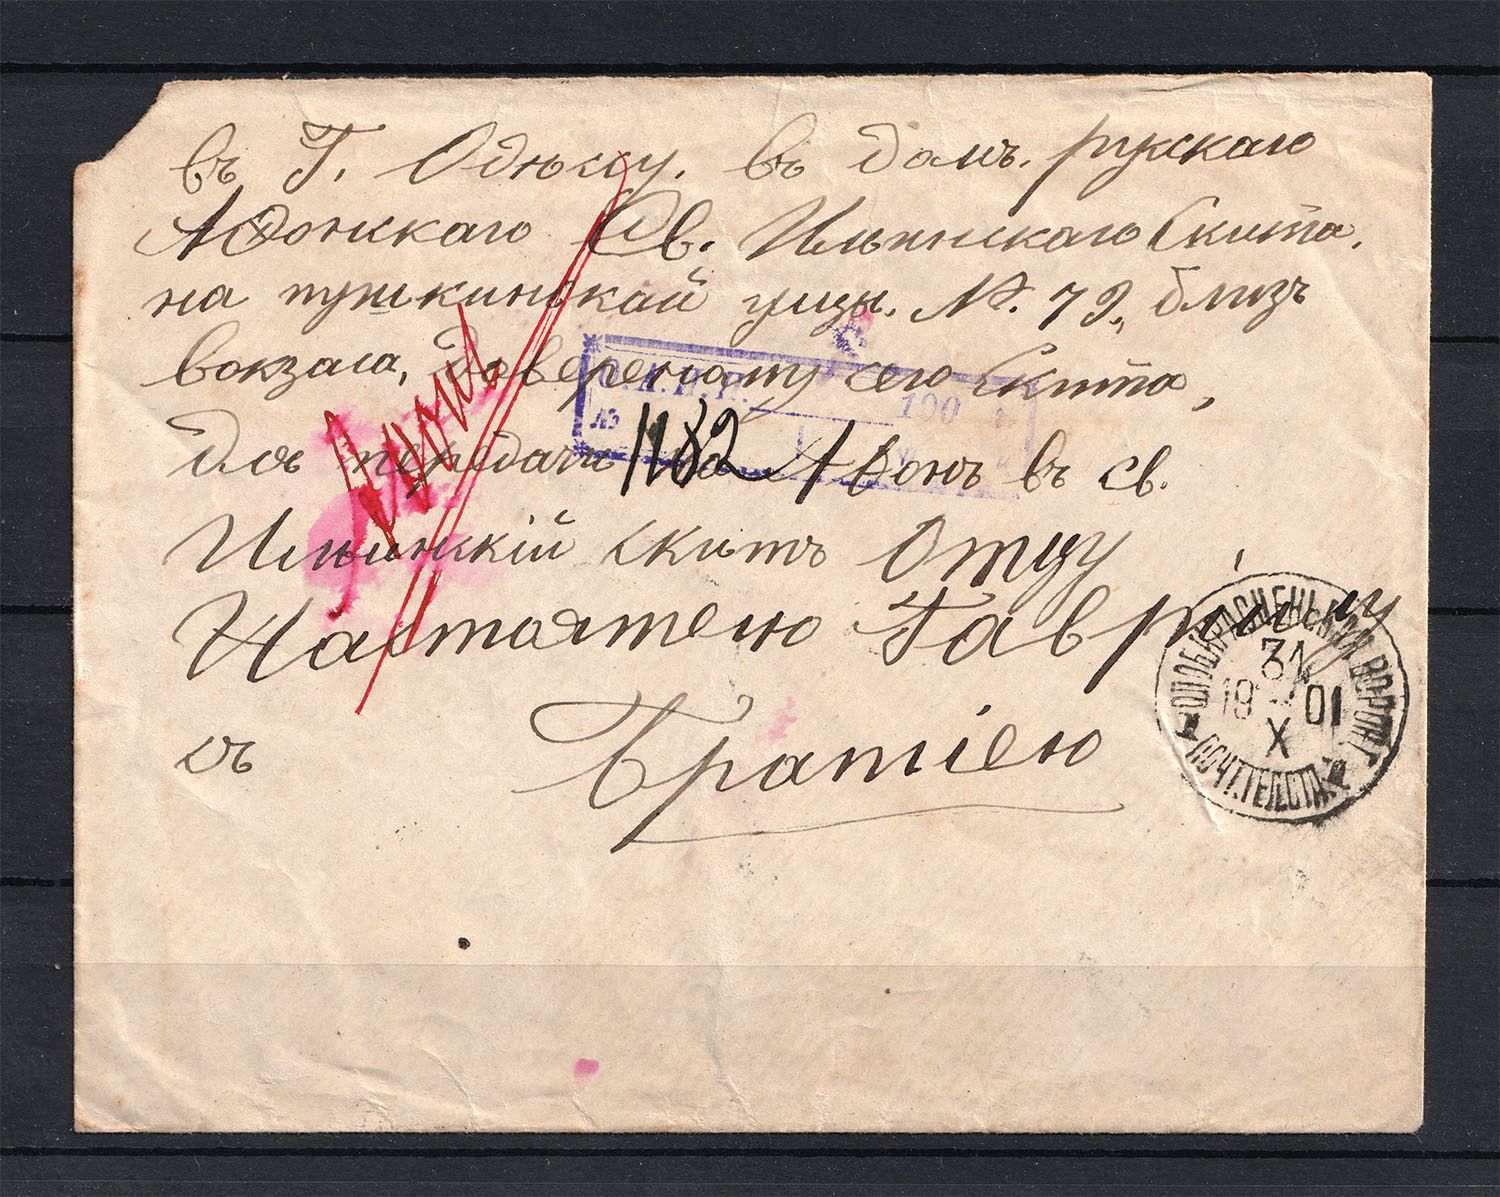 въ Г. Одѣссу. въ домъ. рускаго
Афонскаго Св. Ильинскаго Скита.
на пушкинскай улицы. №. 79, близъ
вокзала, довереному сего Скита,
для передачи на Афонъ въ св.
Ильинскій скитъ Отцу
Настоятелю Гавріилу
съ Братіею
1182
№
190 г.
31
19 01
X
ПОЧТ. ТЕЛ.